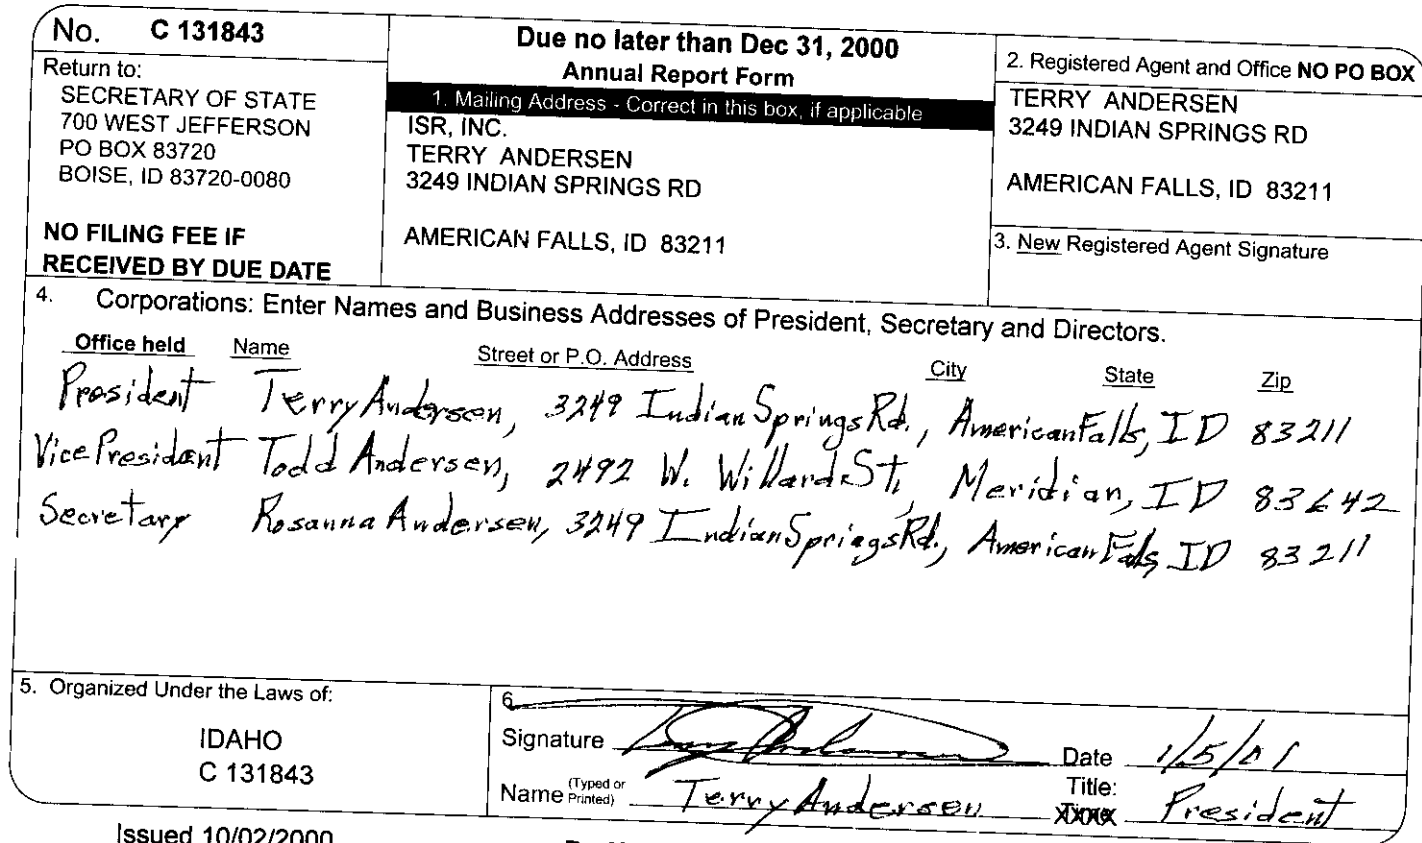 No. C 131843
Return to:
SECRETARY OF STATE
700 WEST JEFFERSON
PO BOX 83720
BOISE, ID 83720-0080
NO FILING FEE IF
RECEIVED BY DUE DATE
Due no later than Dec 31, 2000
Annual Report Form
1. Mailing Address - Correct in this box, if applicable
ISR, INC.
TERRY ANDERSEN
3249 INDIAN SPRINGS RD
AMERICAN FALLS, ID 83211
2. Registered Agent and Office NO PO BOX
TERRY ANDERSEN
3249 INDIAN SPRINGS RD
AMERICAN FALLS, ID 83211
3. New Registered Agent Signature
4. Corporations: Enter Names and Business Addresses of President, Secretary and Directors.
Office held Name Street or P.O. Address City State Zip
President Terry Andersen, 3249 Indian Springs Rd., American Falls, ID 83211
Vice President Todd Andersen, 2492 W. Willard St, Meridian, ID 83642
Secretary Rosanna Andersen, 3249 Indian Springs Rd., American Falls ID 83211
5. Organized Under the Laws of:
IDAHO
C 131843
6.
Signature Terry Andersen Date 1/5/01
Name (Typed or Printed) Terry Andersen Title: President
Issued 10/02/2000